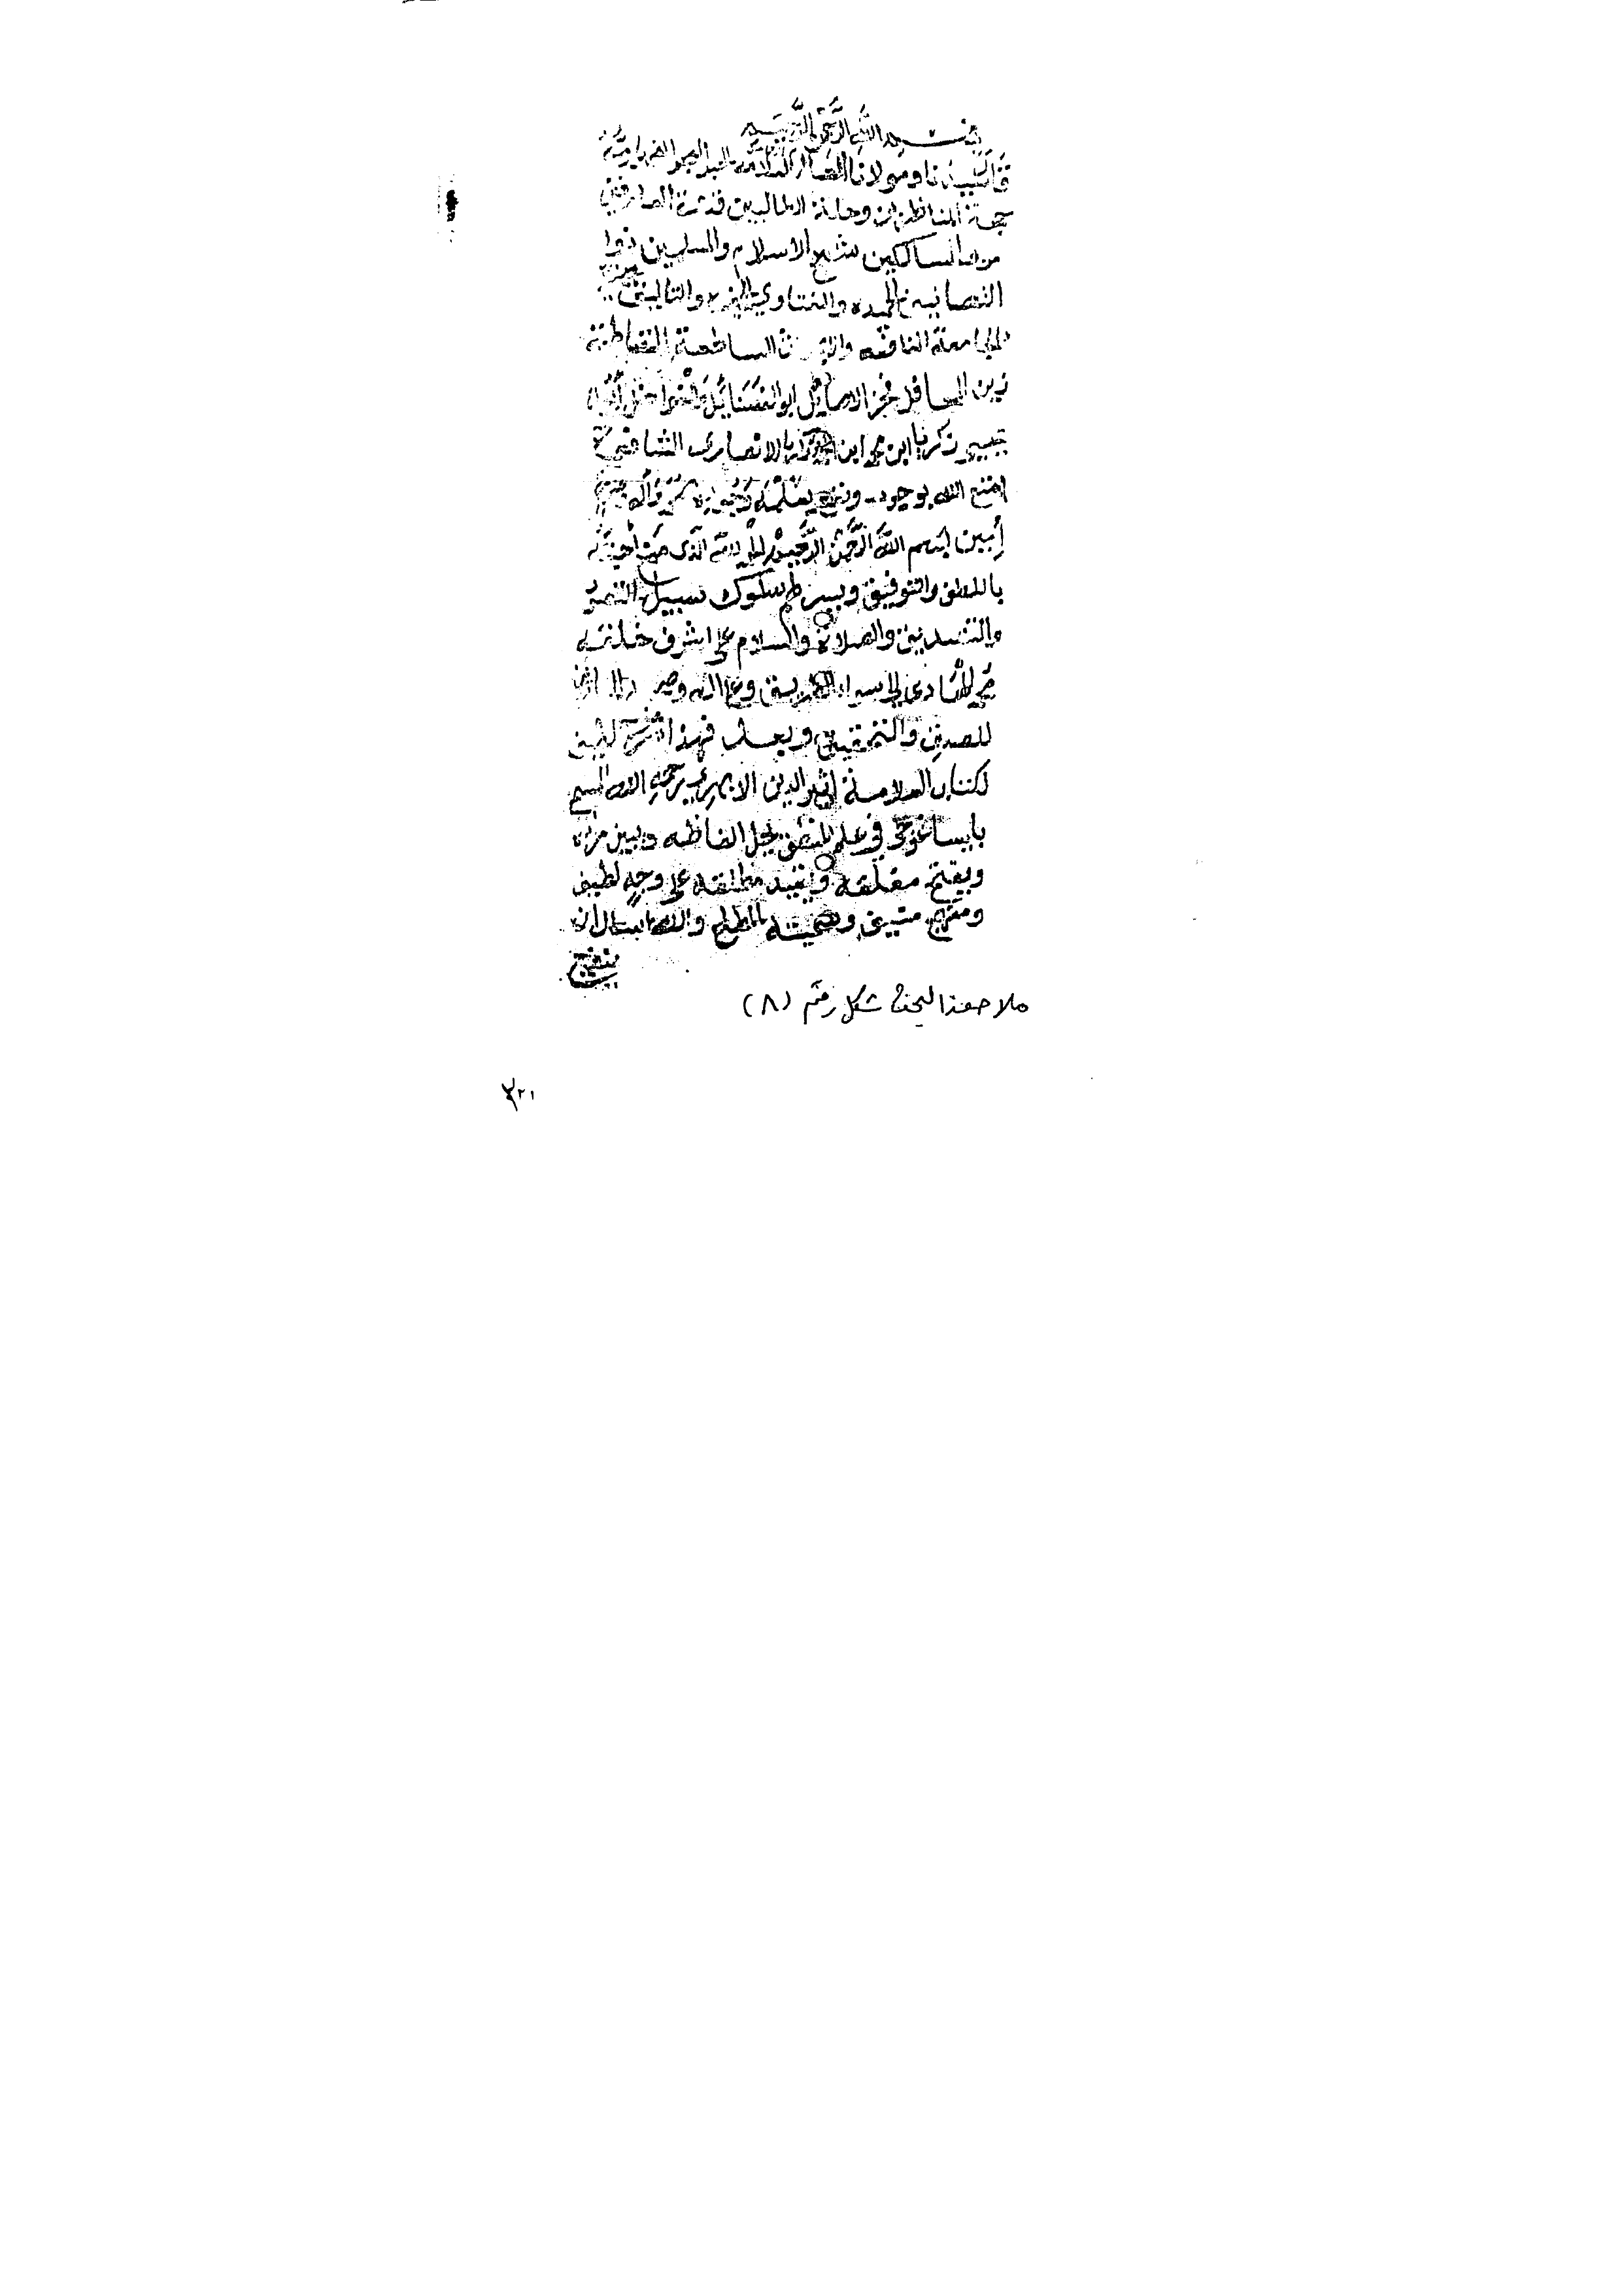 بسم الله الرحمن الرحيم
قال سيدنا ومولانا العالم العلامة الفهامة
حجة المناظرين وحلة الطالبين قدوة العارفين
السالكين شيخ الاسلام والمسلمين ذوا
التصانيف الحميده والفتاوي والتاليف
الجامعة النافعه والساطعة القاطعة
زين المحافل فخر الاماثل ابو
يحيى زكريا ابن محمد ابن الانصارى الشافعي
امتع الله بوجوده ونفع بعلمه وآله
أمين بسم الله الرحمن الرحيم الحمد لله الذى منح أحبته
باللطف والتوفيق ويسر لهم سلوك سبيل التصور
والتصديق والصلاة والسلام على اشرف خلقه
محمد الهادى الى سواء الطريق وعلى اله وصحبه
للصدق والتحقيق وبعد فهذا شرح لطيف
لكتاب العلامة اثير الدين الابهري رحمه الله المسمى
بايساغوجي في علم المنطق يحل الفاظه ويبين مراده
ويفتح مغلقه ويقيد مطلقه على وجه لطيف
ومنهج منيف وسميته بالمطلع والله اسال ان
ينفع
ملاحق البحث شكل رقم (٨)